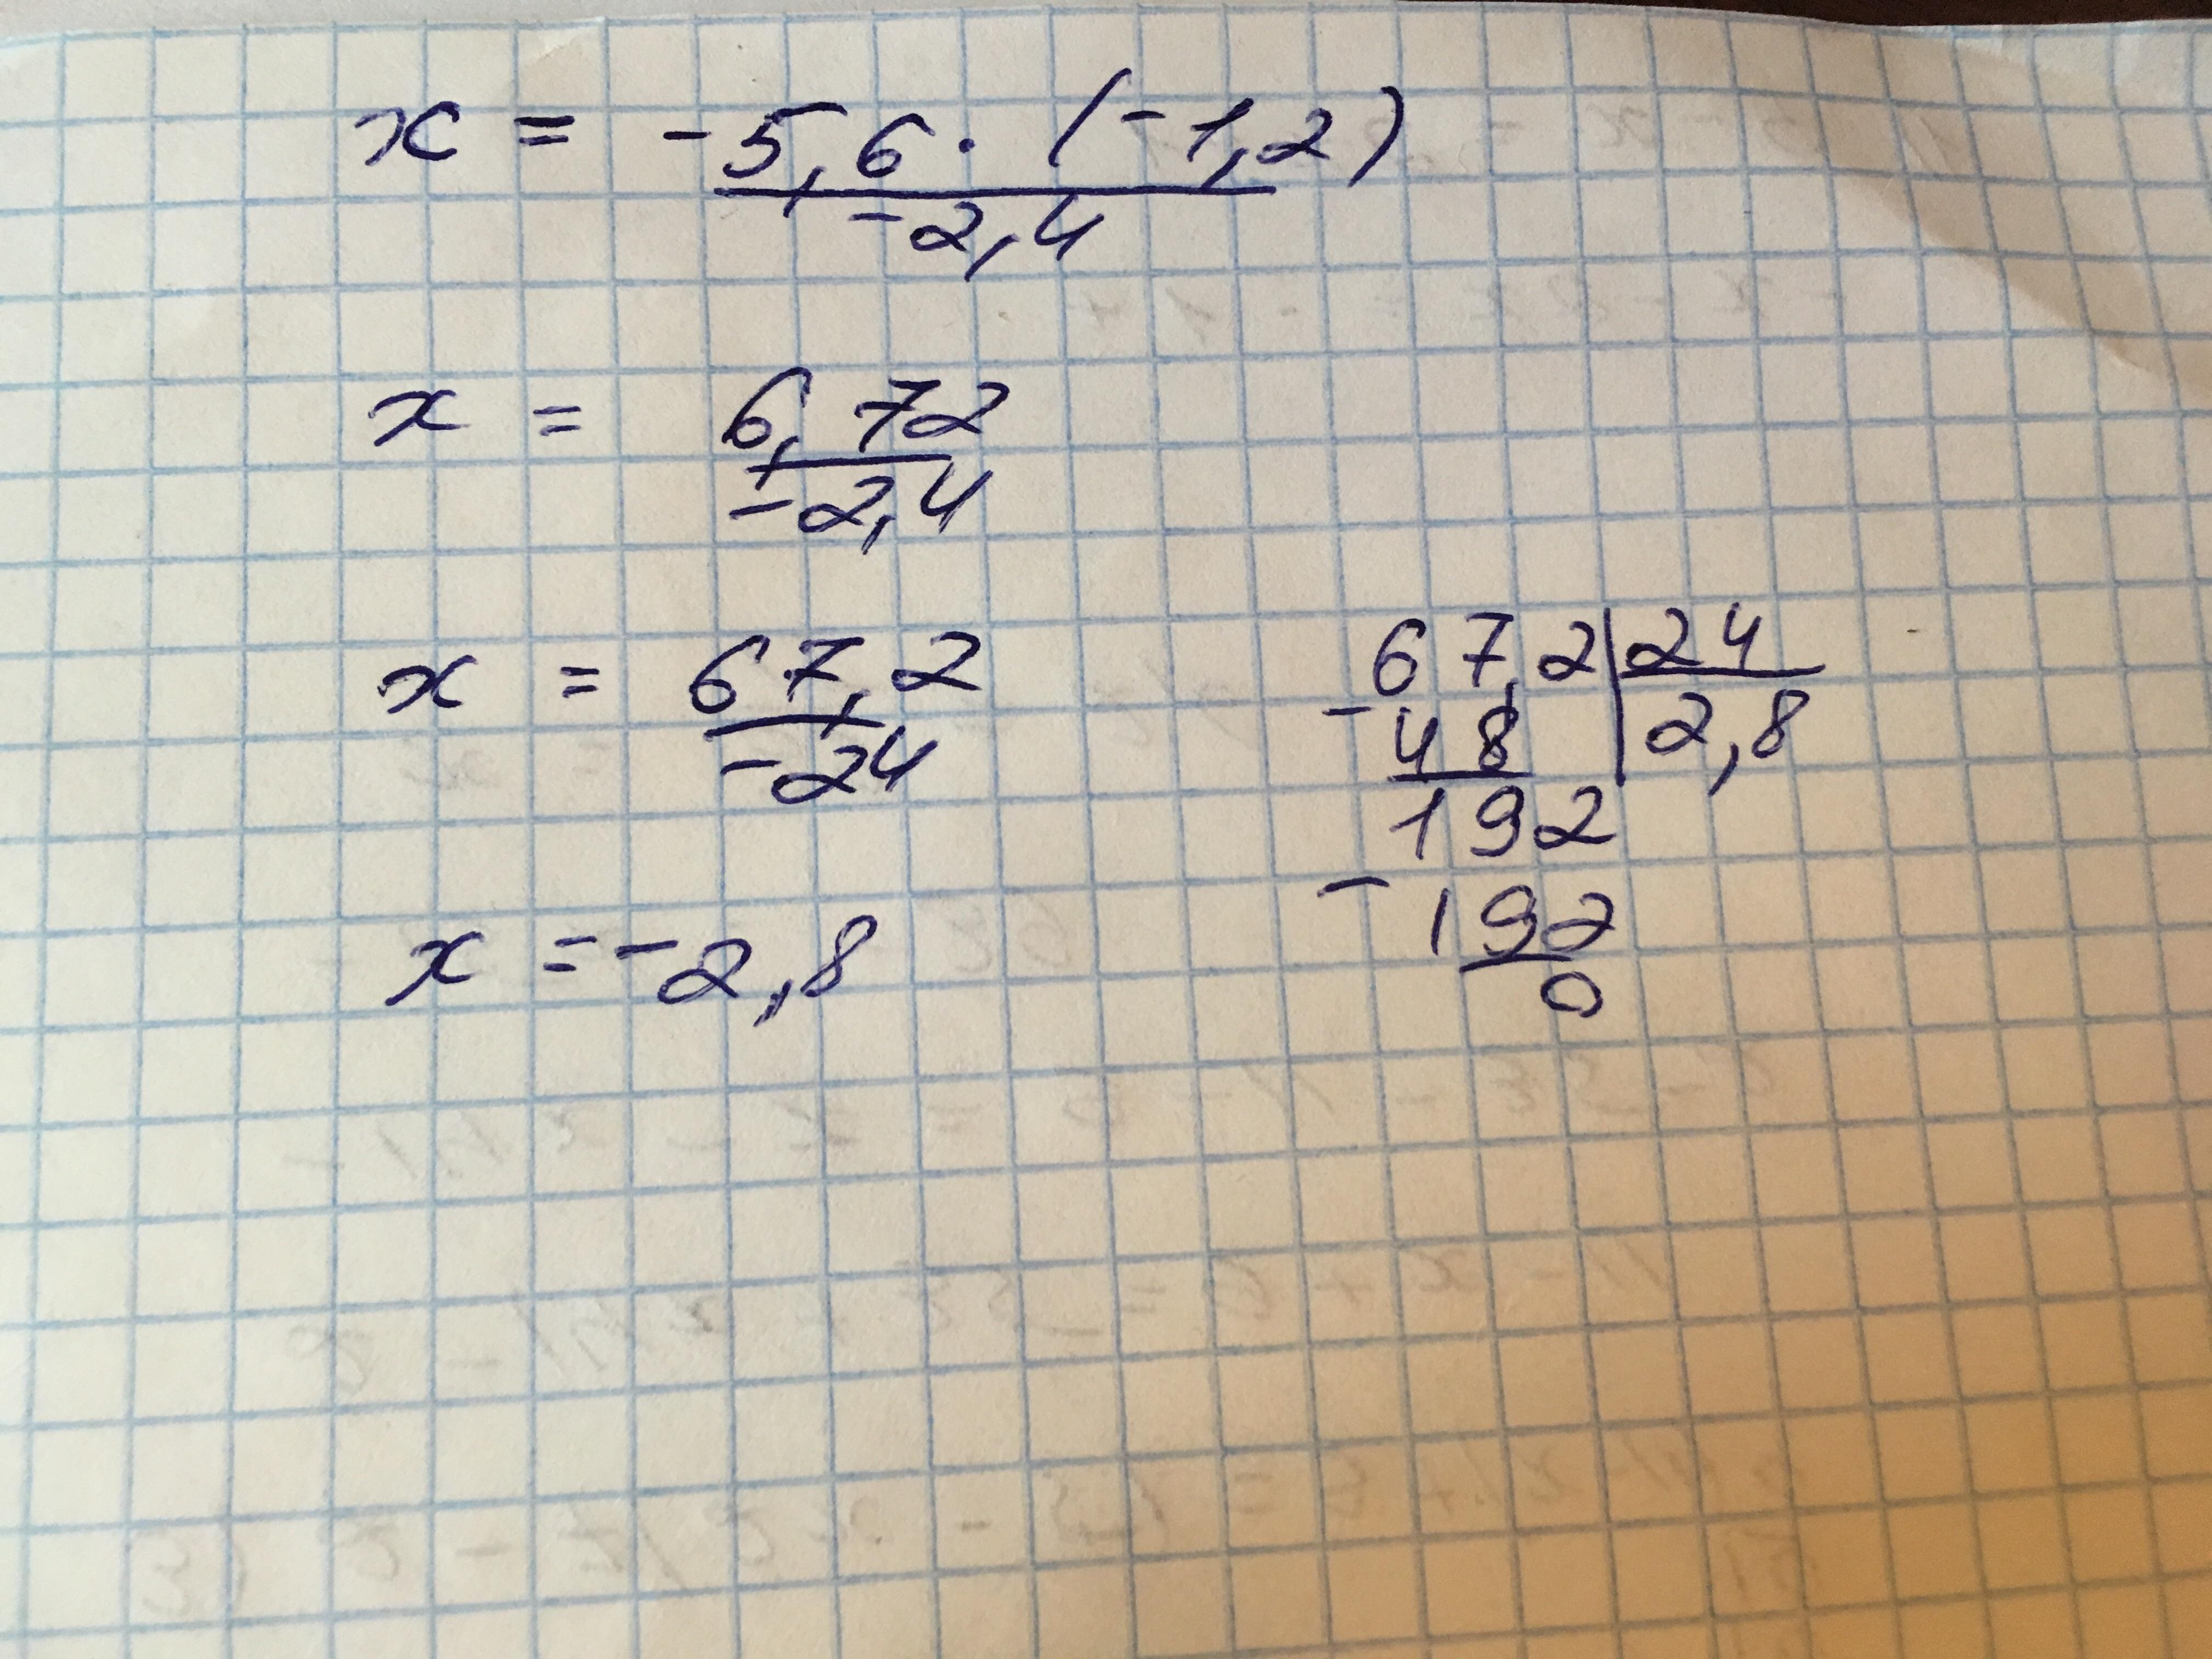 x = -5,6 · (-1,2)
-2,4
x = 6,72
-2,4
x = 67,2
-24
x = -2,8
67,2|24
- 48 |2,8
192
- 192
0